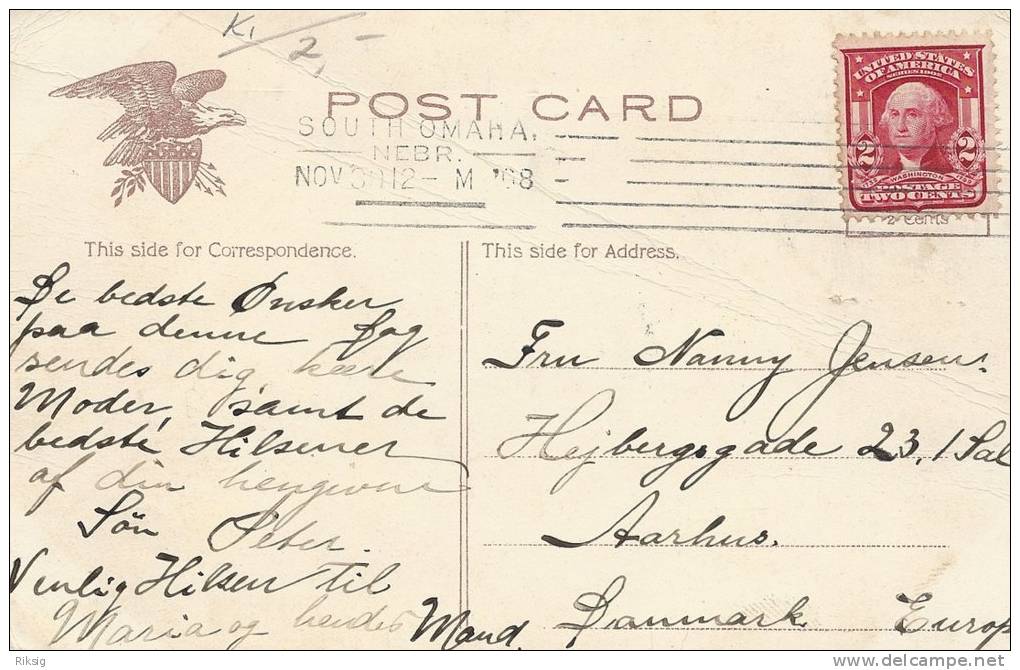 K1/2,-
POST CARD
UNITED STATES
OF AMERICA
SERIES 1902
2 2
WASHINGTON
POSTAGE
TWO CENTS
2 Cents
SOUTH OMAHA,
NEBR.
NOV 12- M '08
This side for Correspondence.
De bedste Ønsker
paa denne Dag
sendes dig, kære
Moder, samt de
bedste Hilsener
af din hengivne
Søn Peter.
Venlig Hilsen til
Maria og hendes Mand.
This side for Address.
Fru Nanny Jensen.
Hejbergsgade 23, 1 Sal
Aarhus.
Danmark Europ
Riksig
delcampe.net